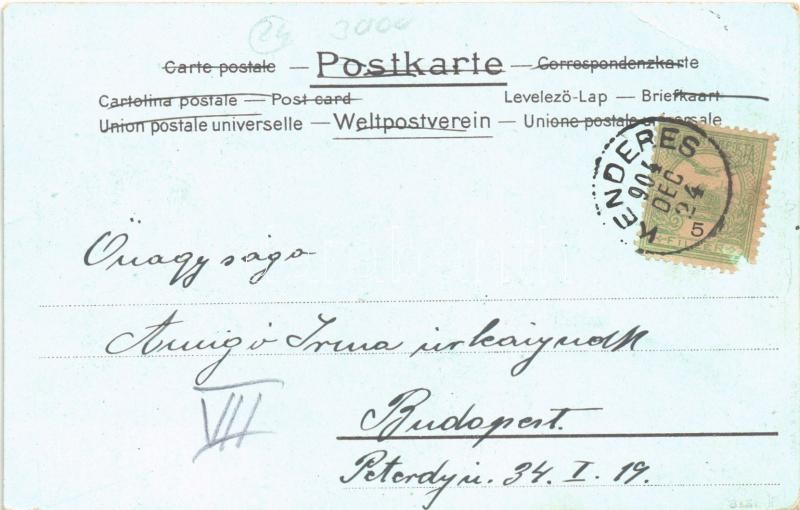 24 3000
Carte postale — Postkarte — Correspondenzkarte
Cartolina postale — Post card Levelező-Lap — Briefkaart
Union postale universelle — Weltpostverein — Unione postale universale
KENDERES
904
DEC
24
5
FILLÉR
Őnagysága
Amigó Irma úrleánynak
VII
Budapest.
Peterdy u. 34. I. 19.